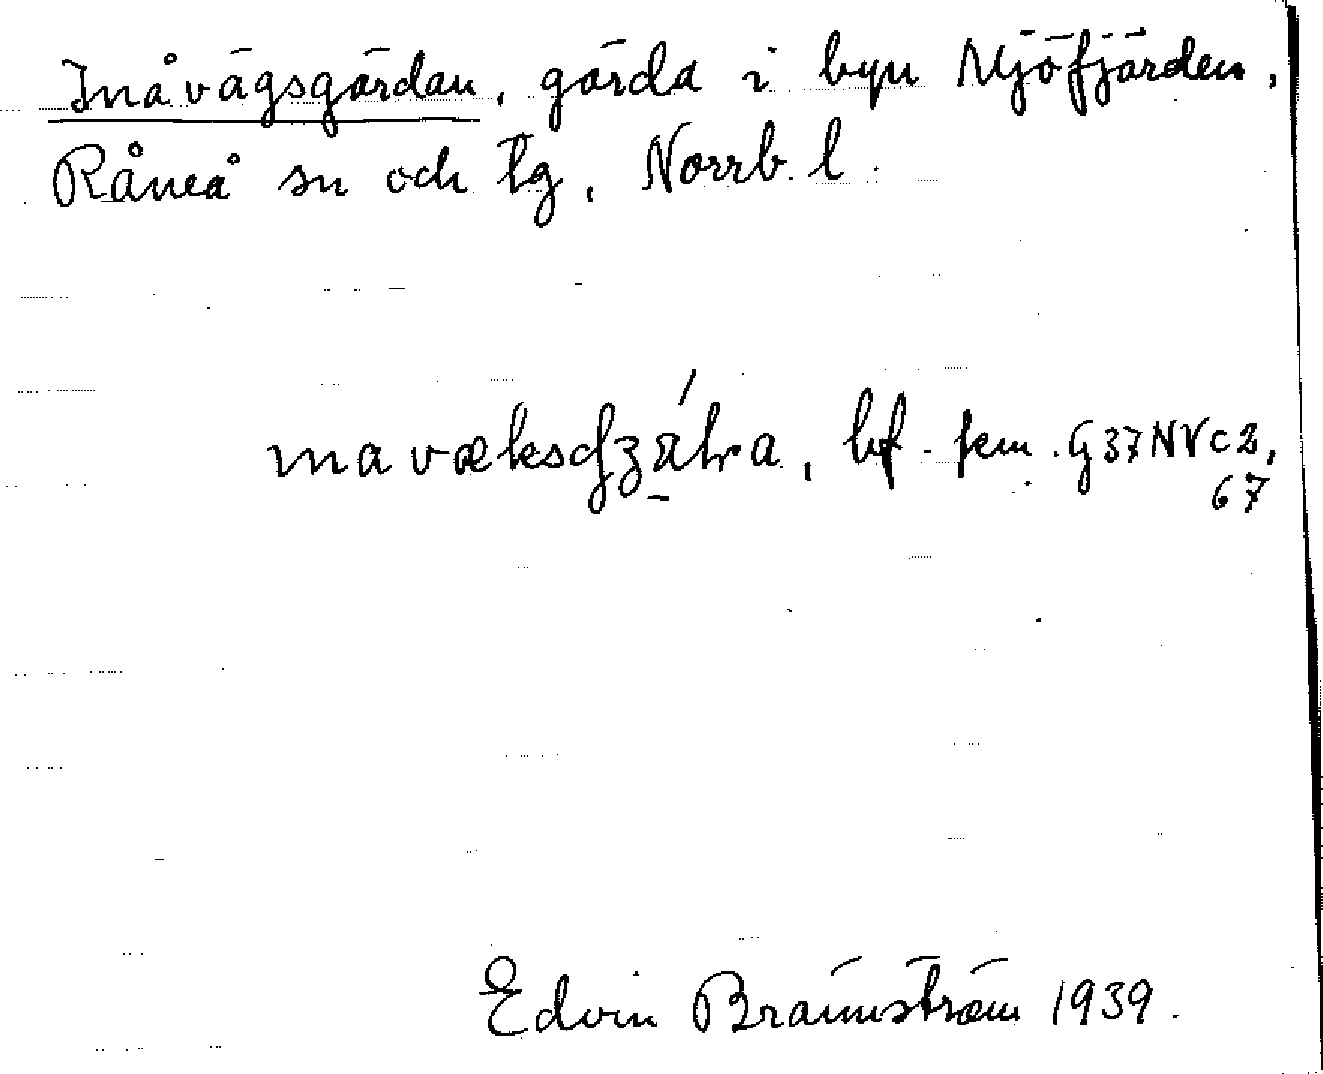 Inåvägsgärdan, gärda i byn Mjöfjärden,
Råneå sn och tg, Norrb. l.
bf. fem. G37NVc2,
67
Edvin Brännström 1939.